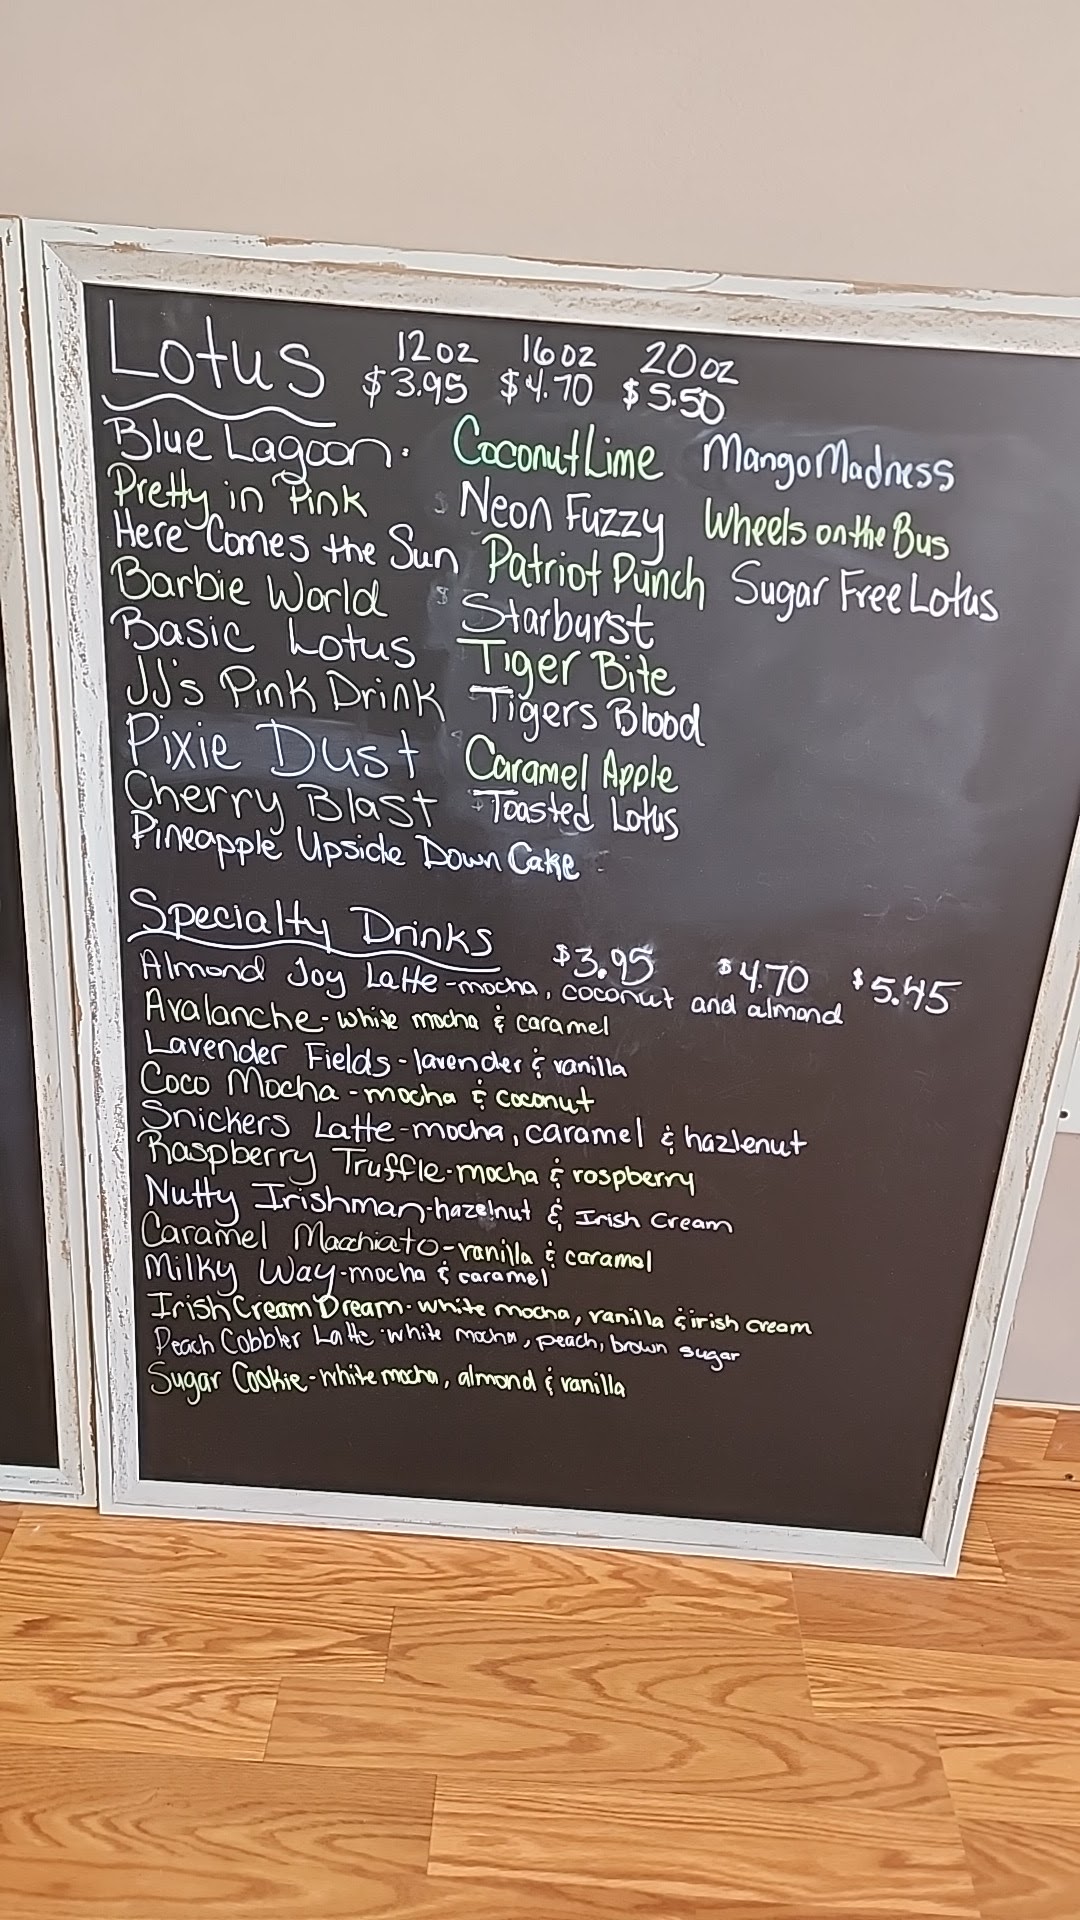 Lotus 12oz 16oz 20oz
$3.95 $4.70 $5.50
Blue Lagoon. Coconut Lime Mango Madness
Pretty in Pink Neon Fuzzy Wheels on the Bus
Here Comes the Sun Patriot Punch Sugar Free Lotus
Barbie World Starburst
Basic Lotus Tiger Bite
JJ's Pink Drink Tigers Blood
Pixie Dust Caramel Apple
Cherry Blast Toasted Lotus
Pineapple Upside Down Cake
Specialty Drinks $3.95 $4.70 $5.45
Almond Joy Latte-mocha, coconut and almond
Avalanche-white mocha & caramel
Lavender Fields-lavender & vanilla
Coco Mocha-mocha & coconut
Snickers Latte-mocha, caramel & hazlenut
Raspberry Truffle-mocha & rospberry
Nutty Irishman-hazelnut & Irish Cream
Caramel Macchiato-vanilla & caramel
Milky Way-mocha & caramel
Irish Cream Dream-white mocha, vanilla & irish cream
Peach Cobbler Latte-white mocha, peach, brown sugar
Sugar Cookie-white mocha, almond & vanilla